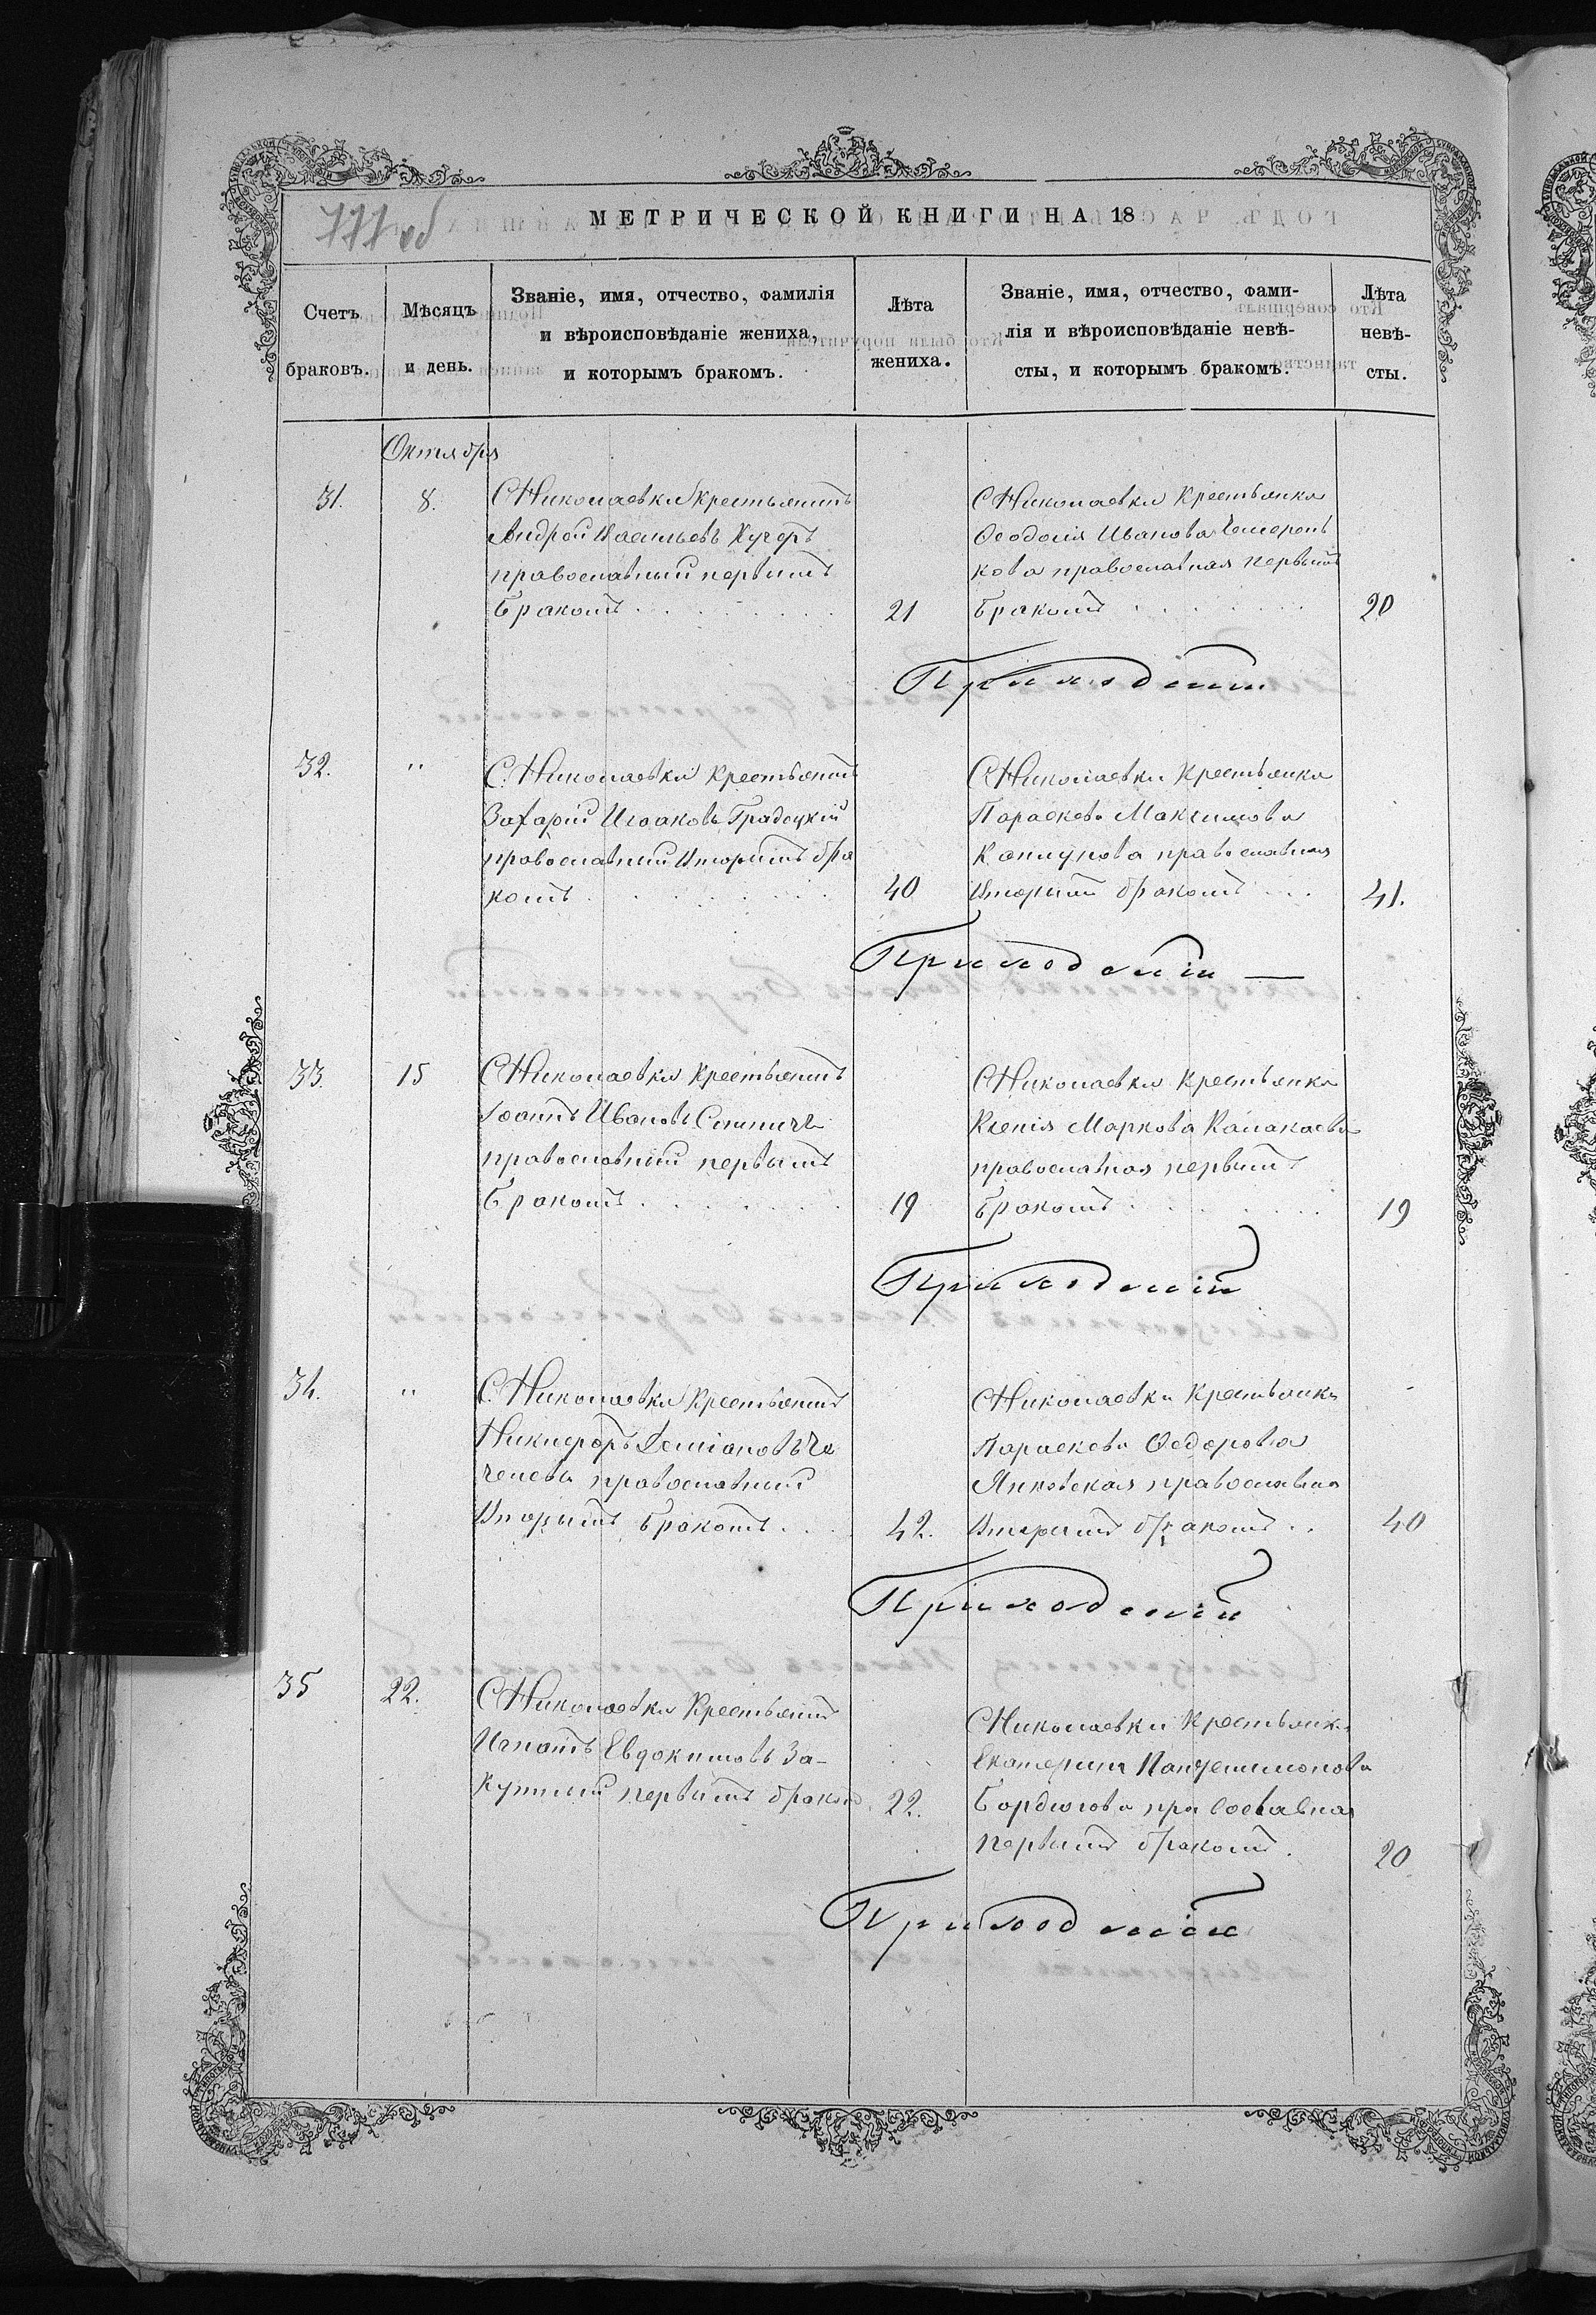 777 об
МЕТРИЧЕСКОЙ КНИГИ НА 18
Счетъ браковъ.
Мѣсяцъ и день.
Званіе, имя, отчество, фамилія
и вѣроисповѣданіе жениха,
и которымъ бракомъ.
Лѣта жениха.
Званіе, имя, отчество, фами-
лія и вѣроисповѣданіе невѣ-
сты, и которымъ бракомъ.
Лѣта невѣ-
сты.
Октября
31.
8.
С Николаевки Крестьянинъ
Андрей Васильевъ Кучеръ
православный первымъ
бракомъ
21
С Николаевки Крестьянка
Ѳеодосія Иванова
кова православная первымъ
бракомъ
20
Приходскіи
32.
"
С. Николаевки Крестьянинъ
Захарій Исааковъ Градецкій
православный Вторымъ бра
комъ
40
С Николаевки Крестьянка
Параскева Максимова
православная
Вторымъ бракомъ
41.
Приходскіи
33.
15
С Николаевки Крестьянинъ
Іоаннъ Ивановъ
православный первымъ
бракомъ
19
С Николаевки Крестьянка
Ксенія Маркова
православная первымъ
бракомъ
19
Приходскіи
34.
"
С. Николаевки Крестьянинъ
Никифоръ Деміановъ Че
православный
Вторымъ бракомъ
42.
С Николаевки Крестьянка
Параскева Ѳедорова
Янковская православная
Вторымъ бракомъ
40
Приходскіи
35
22.
С Николаевки Крестьянинъ
Игнатъ Евдокимовъ За-
первымъ бракомъ
22.
С Николаевки Крестьянка
Екатерина Пантелимонова
Бордюгова православная
первымъ бракомъ.
20
Приходскіи